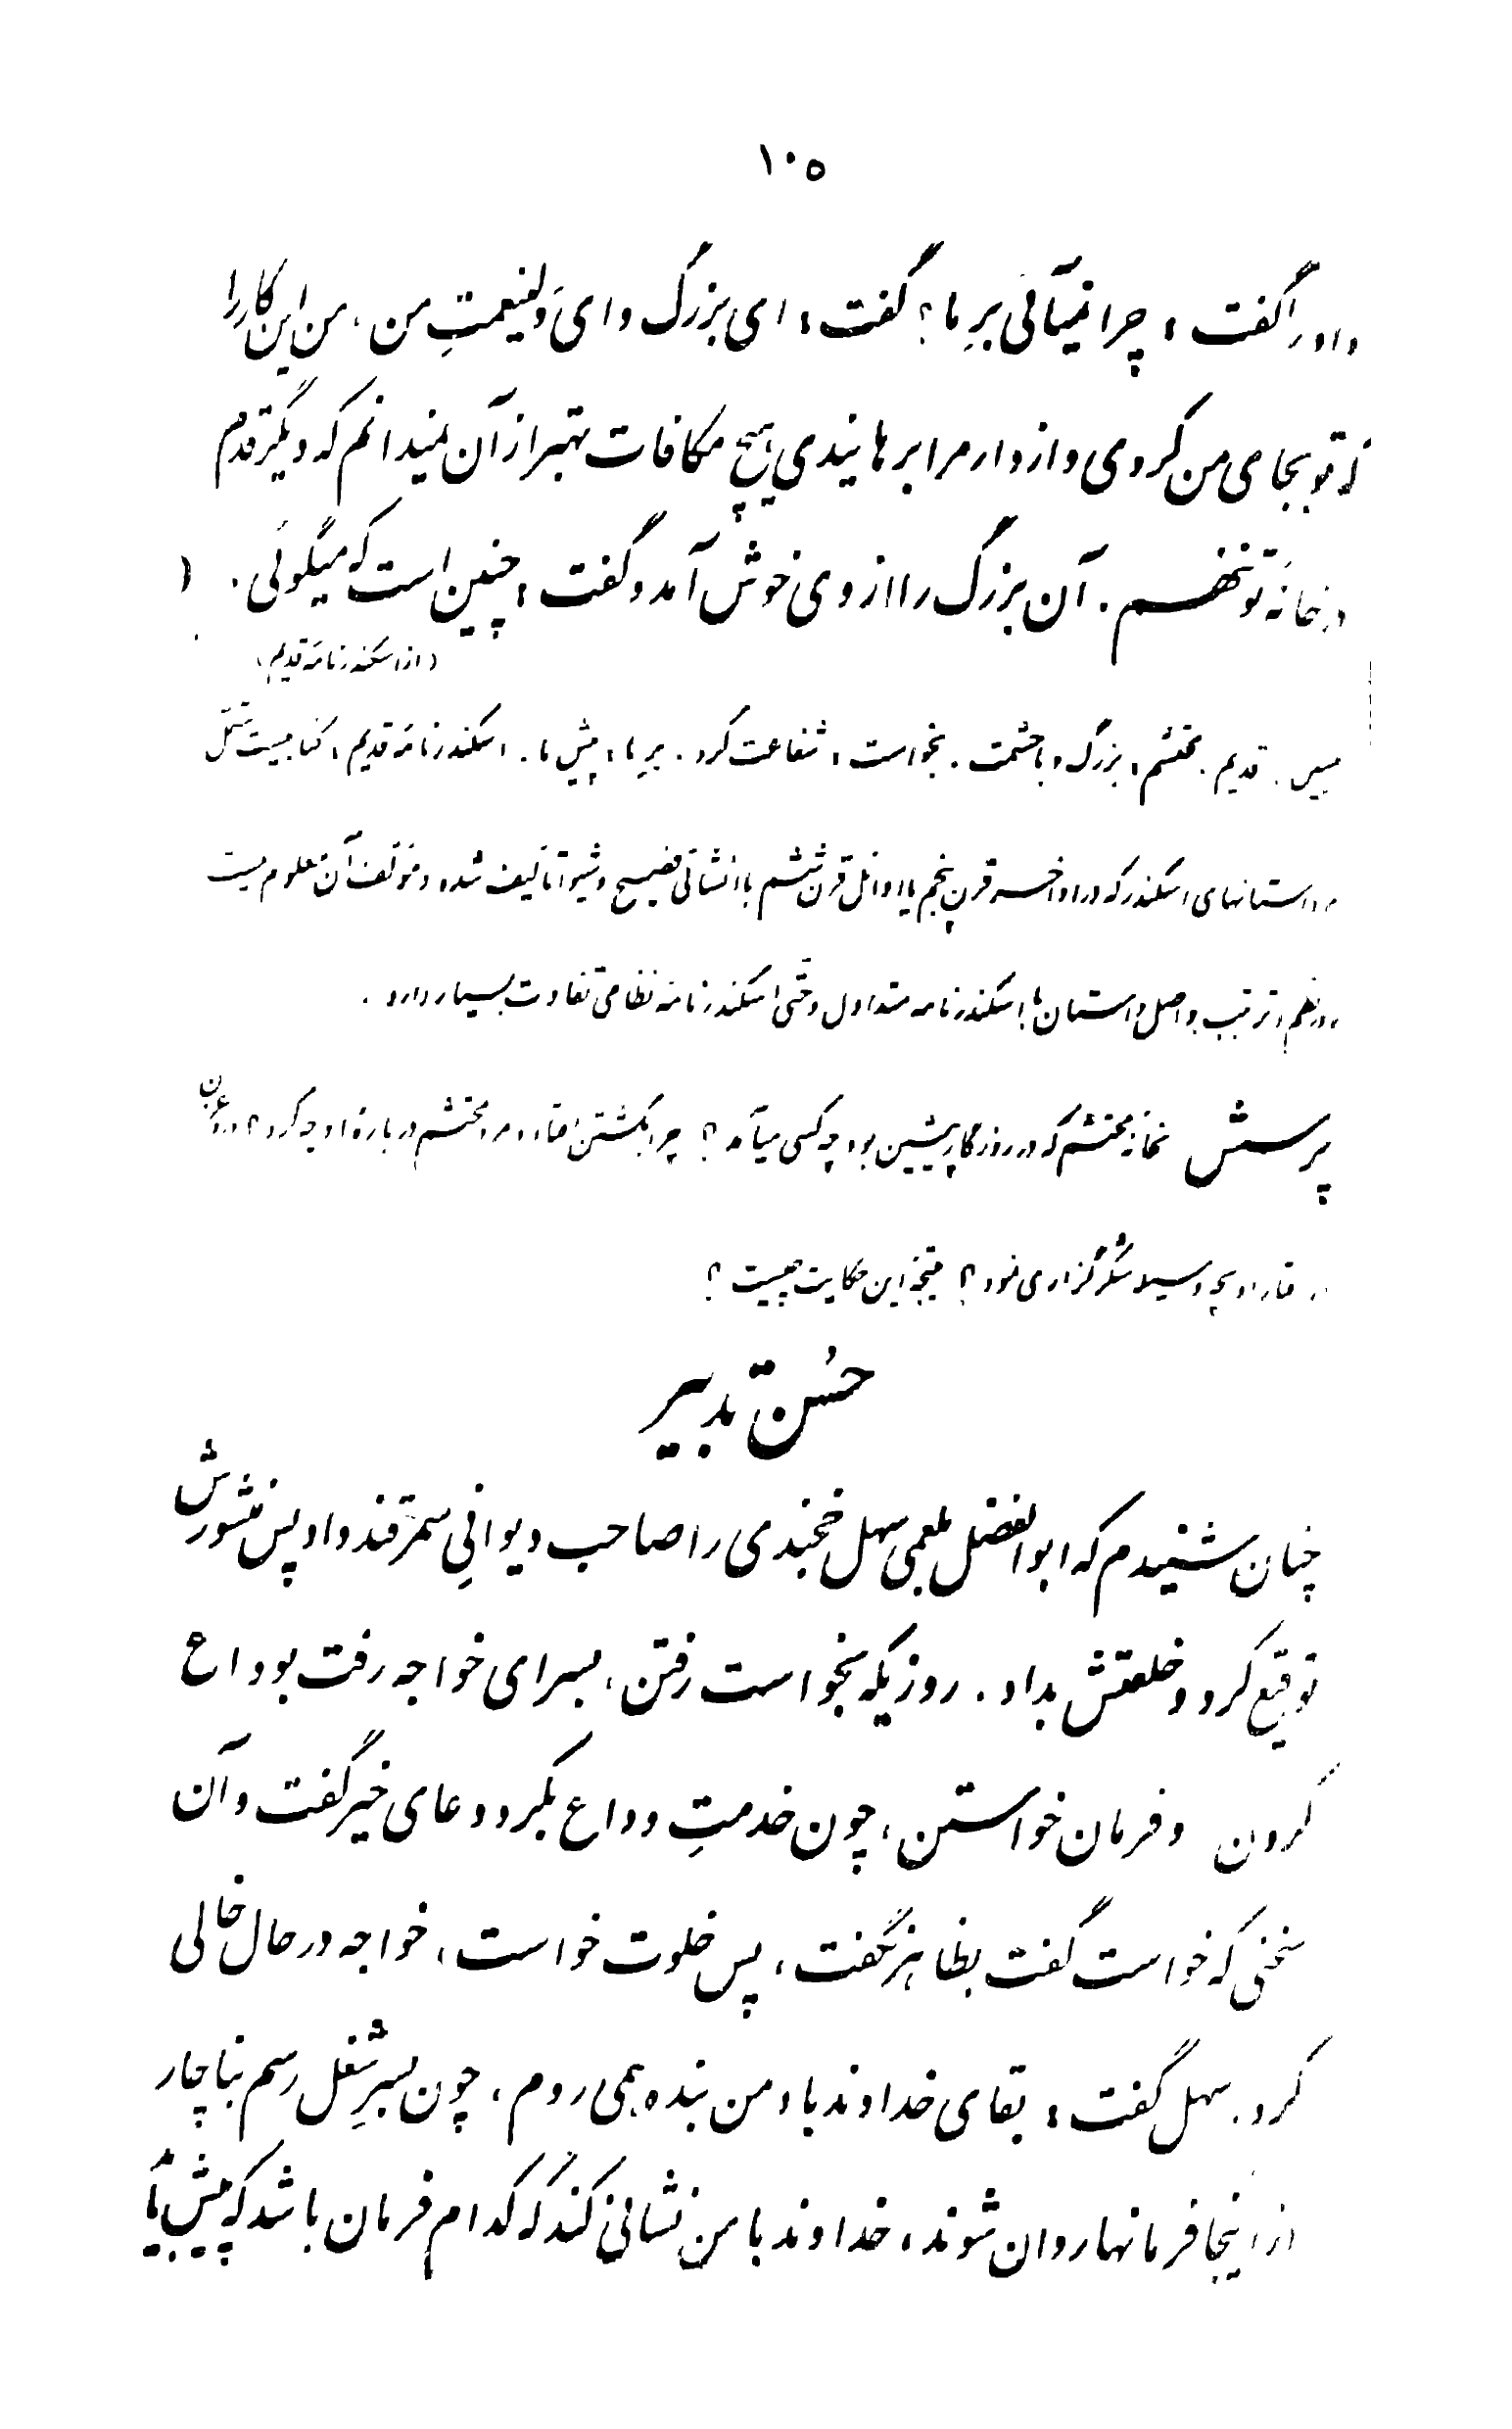 ۱۰۵
و او را گفت : چرا نمیآئی برِ ما ؟ گفت : ای بزرگ و ای وَلینعمتِ من ، من این کار را
که تو بجای من کردی و از دار مرا برهانیدی هیچ مکافات بهتر از آن نمیدانم که دیگر قدم
در خانهٔ تو ننهم . آن بزرگ را از وی خوش آمد و گفت : چنین است که میگوئی .
( از اسکندرنامهٔ قدیم )
پیشین . قدیم . محتشم : بزرگ و باحشمت . بخواست : شفاعت کرد . برِ ما : پیش ما . اسکندرنامهٔ قدیم : کتابیست مشتمل
بر داستانهای اسکندر که در اواخر قرن پنجم یا اوائل قرن ششم با انشائی فصیح و شیوا تألیف شده و مؤلف آن معلوم نیست
و در نظم و ترتیب و اصل داستان با اسکندرنامه متداول و حتّی اسکندرنامهٔ نظامی تفاوت بسیار دارد .
پرسش بخانهٔ محتشم که در روزگار پیشین بود چه کسی میآمد ؟ چرا بکشتن افتاد و مرد محتشم در بارهٔ او چه کرد ؟ دزد
از قتار او بچه وسیله شکرگزاری نمود ؟ نتیجهٔ این حکایت چیست ؟
حُسن تدبیر
چنان شنیدم که ابوالفضل بلعمی سهل خجندی را صاحب دیوانیِ سمرقند داد پس منشورش
توقیع کرد و خلعتش بداد . روزیکه بخواست رفتن ، بسرای خواجه رفت بوداع
کردن و فرمان خواستن ، چون خدمتِ وداع بکرد و دعای خیر گفت و آن
سخنی که خواست گفت بظاهر بگفت ، پس خلوت خواست ، خواجه در حال خالی
کرد . سهل گفت : بقای خداوند باد من بنده همی روم ، چون بسرِ شغل رسم بناچار
از اینجا فرمانها روان شوند ، خداوند با من نشانی کند که کدام فرمان باشد که پیش باید